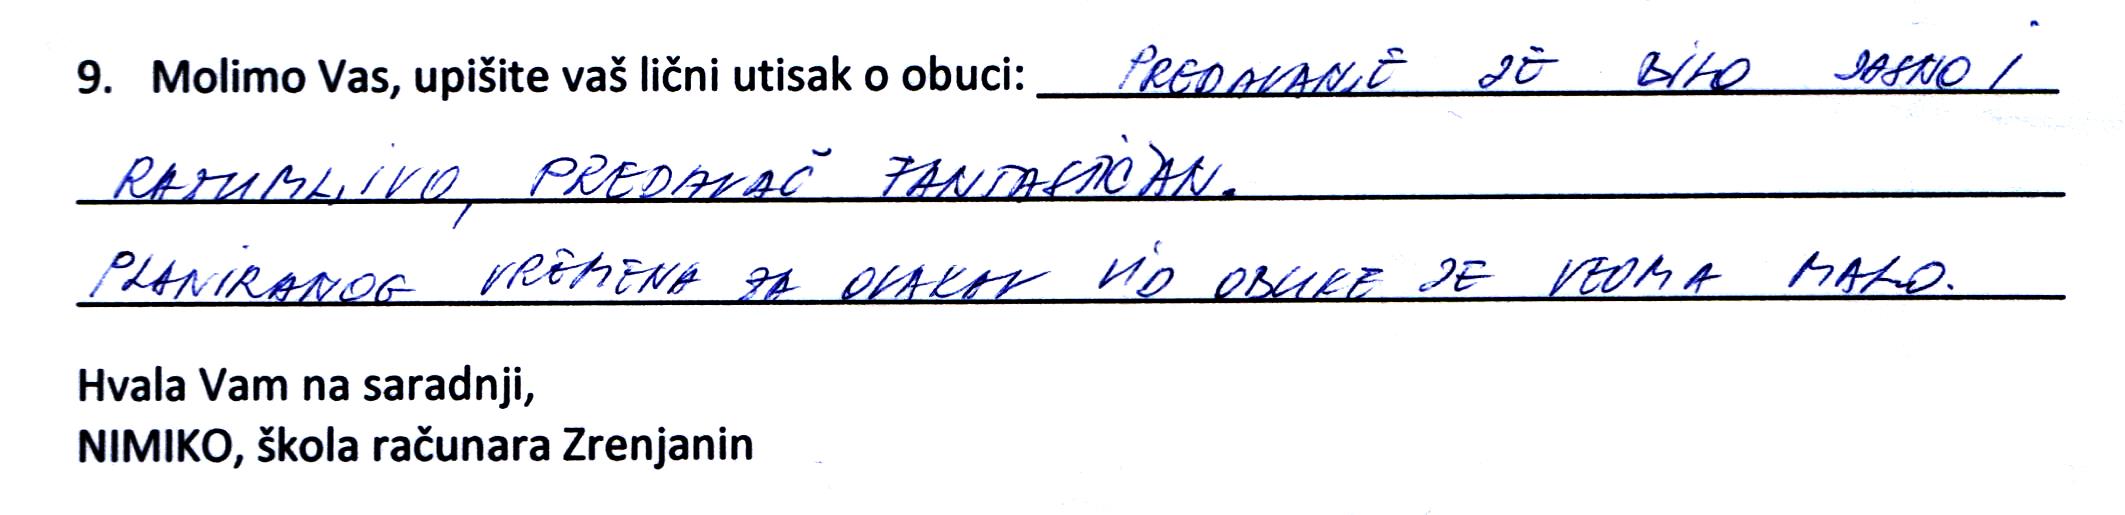 9. Molimo Vas, upišite vaš lični utisak o obuci: PREDAVANJE JE BILO JASNO I
RAZUMLJIVO, PREDAVAČ FANTASTIČAN.
PLANIRANOG VREMENA ZA OVAKAV VID OBUKE JE VEOMA MALO.
Hvala Vam na saradnji,
NIMIKO, škola računara Zrenjanin